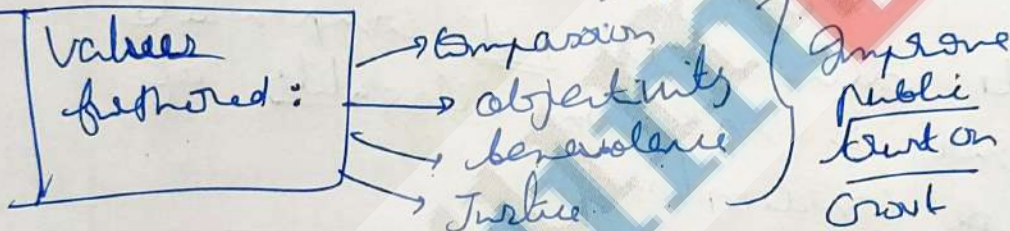 Values
furthered:
→ Compassion
→ objectivity
→ benevolence
→ Justice
Improve
public
trust on
Govt